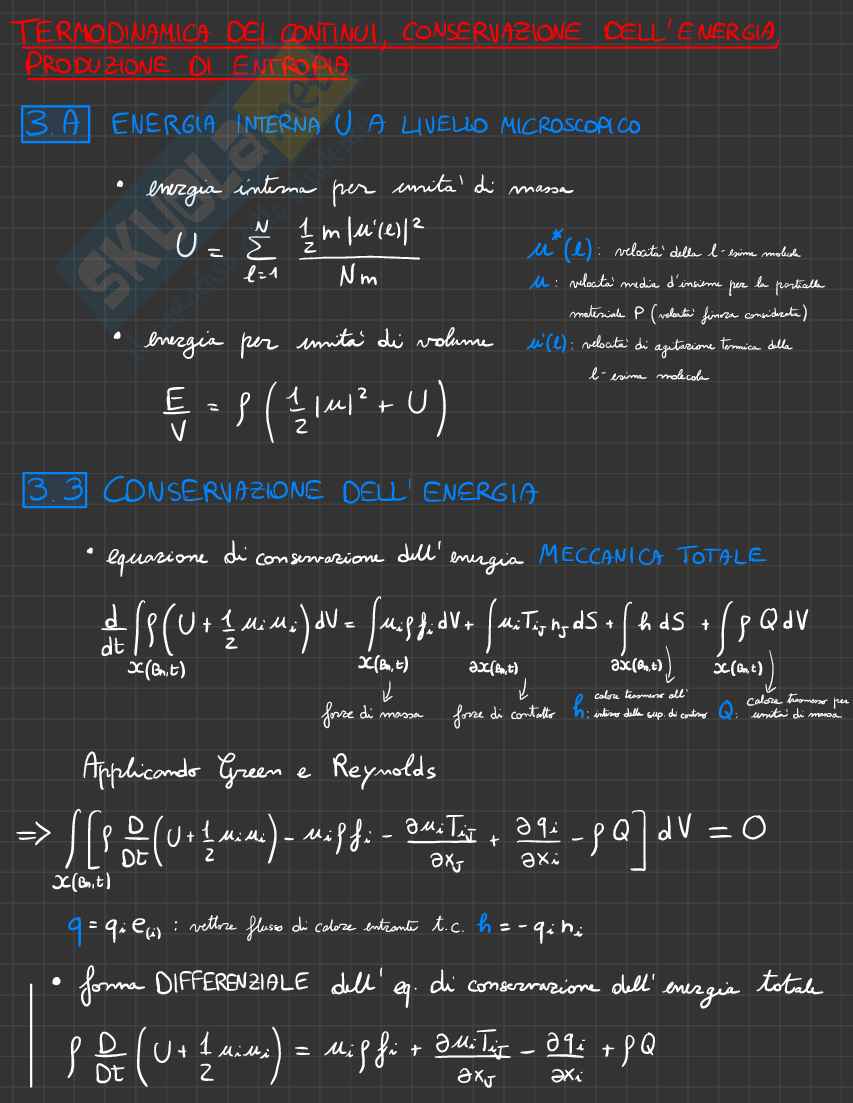 TERMODINAMICA DEI CONTINUI, CONSERVAZIONE DELL'ENERGIA,
PRODUZIONE DI ENTROPIA
3.A ENERGIA INTERNA U A LIVELLO MICROSCOPICO
• energia interna per unità di massa
U = ∑_{l=1}^{N} (1/2 m |u'(l)|²) / (N m)
u*(l): velocità della l-esima molecola
u: velocità media d'insieme per la particella
materiale P (velocità finora considerata)
• energia per unità di volume
u'(l): velocità di agitazione termica della
l-esima molecola
E/V = ρ ( 1/2 |u|² + U )
3.3 CONSERVAZIONE DELL'ENERGIA
• equazione di conservazione dell'energia MECCANICA TOTALE
d/dt ∫_{X(Bn,t)} ρ ( U + 1/2 ui ui ) dV = ∫_{X(Bn,t)} ui ρ fi dV + ∫_{∂X(Bn,t)} ui Tij nj dS + ∫_{∂X(Bn,t)} h dS + ∫_{X(Bn,t)} ρ Q dV
forze di massa forze di contatto h: calore trasmesso all'interno della sup. di contorno Q: calore trasmesso per unità di massa
Applicando Green e Reynolds
=> ∫_{X(Bn,t)} [ ρ D/Dt ( U + 1/2 ui ui ) - ui ρ fi - ∂ui Tij/∂xj + ∂qi/∂xi - ρ Q ] dV = 0
q = qi e(i): vettore flusso di calore entrante t.c. h = - qi ni
• forma DIFFERENZIALE dell'eq. di conservazione dell'energia totale
ρ D/Dt ( U + 1/2 ui ui ) = ui ρ fi + ∂ui Tij/∂xj - ∂qi/∂xi + ρ Q